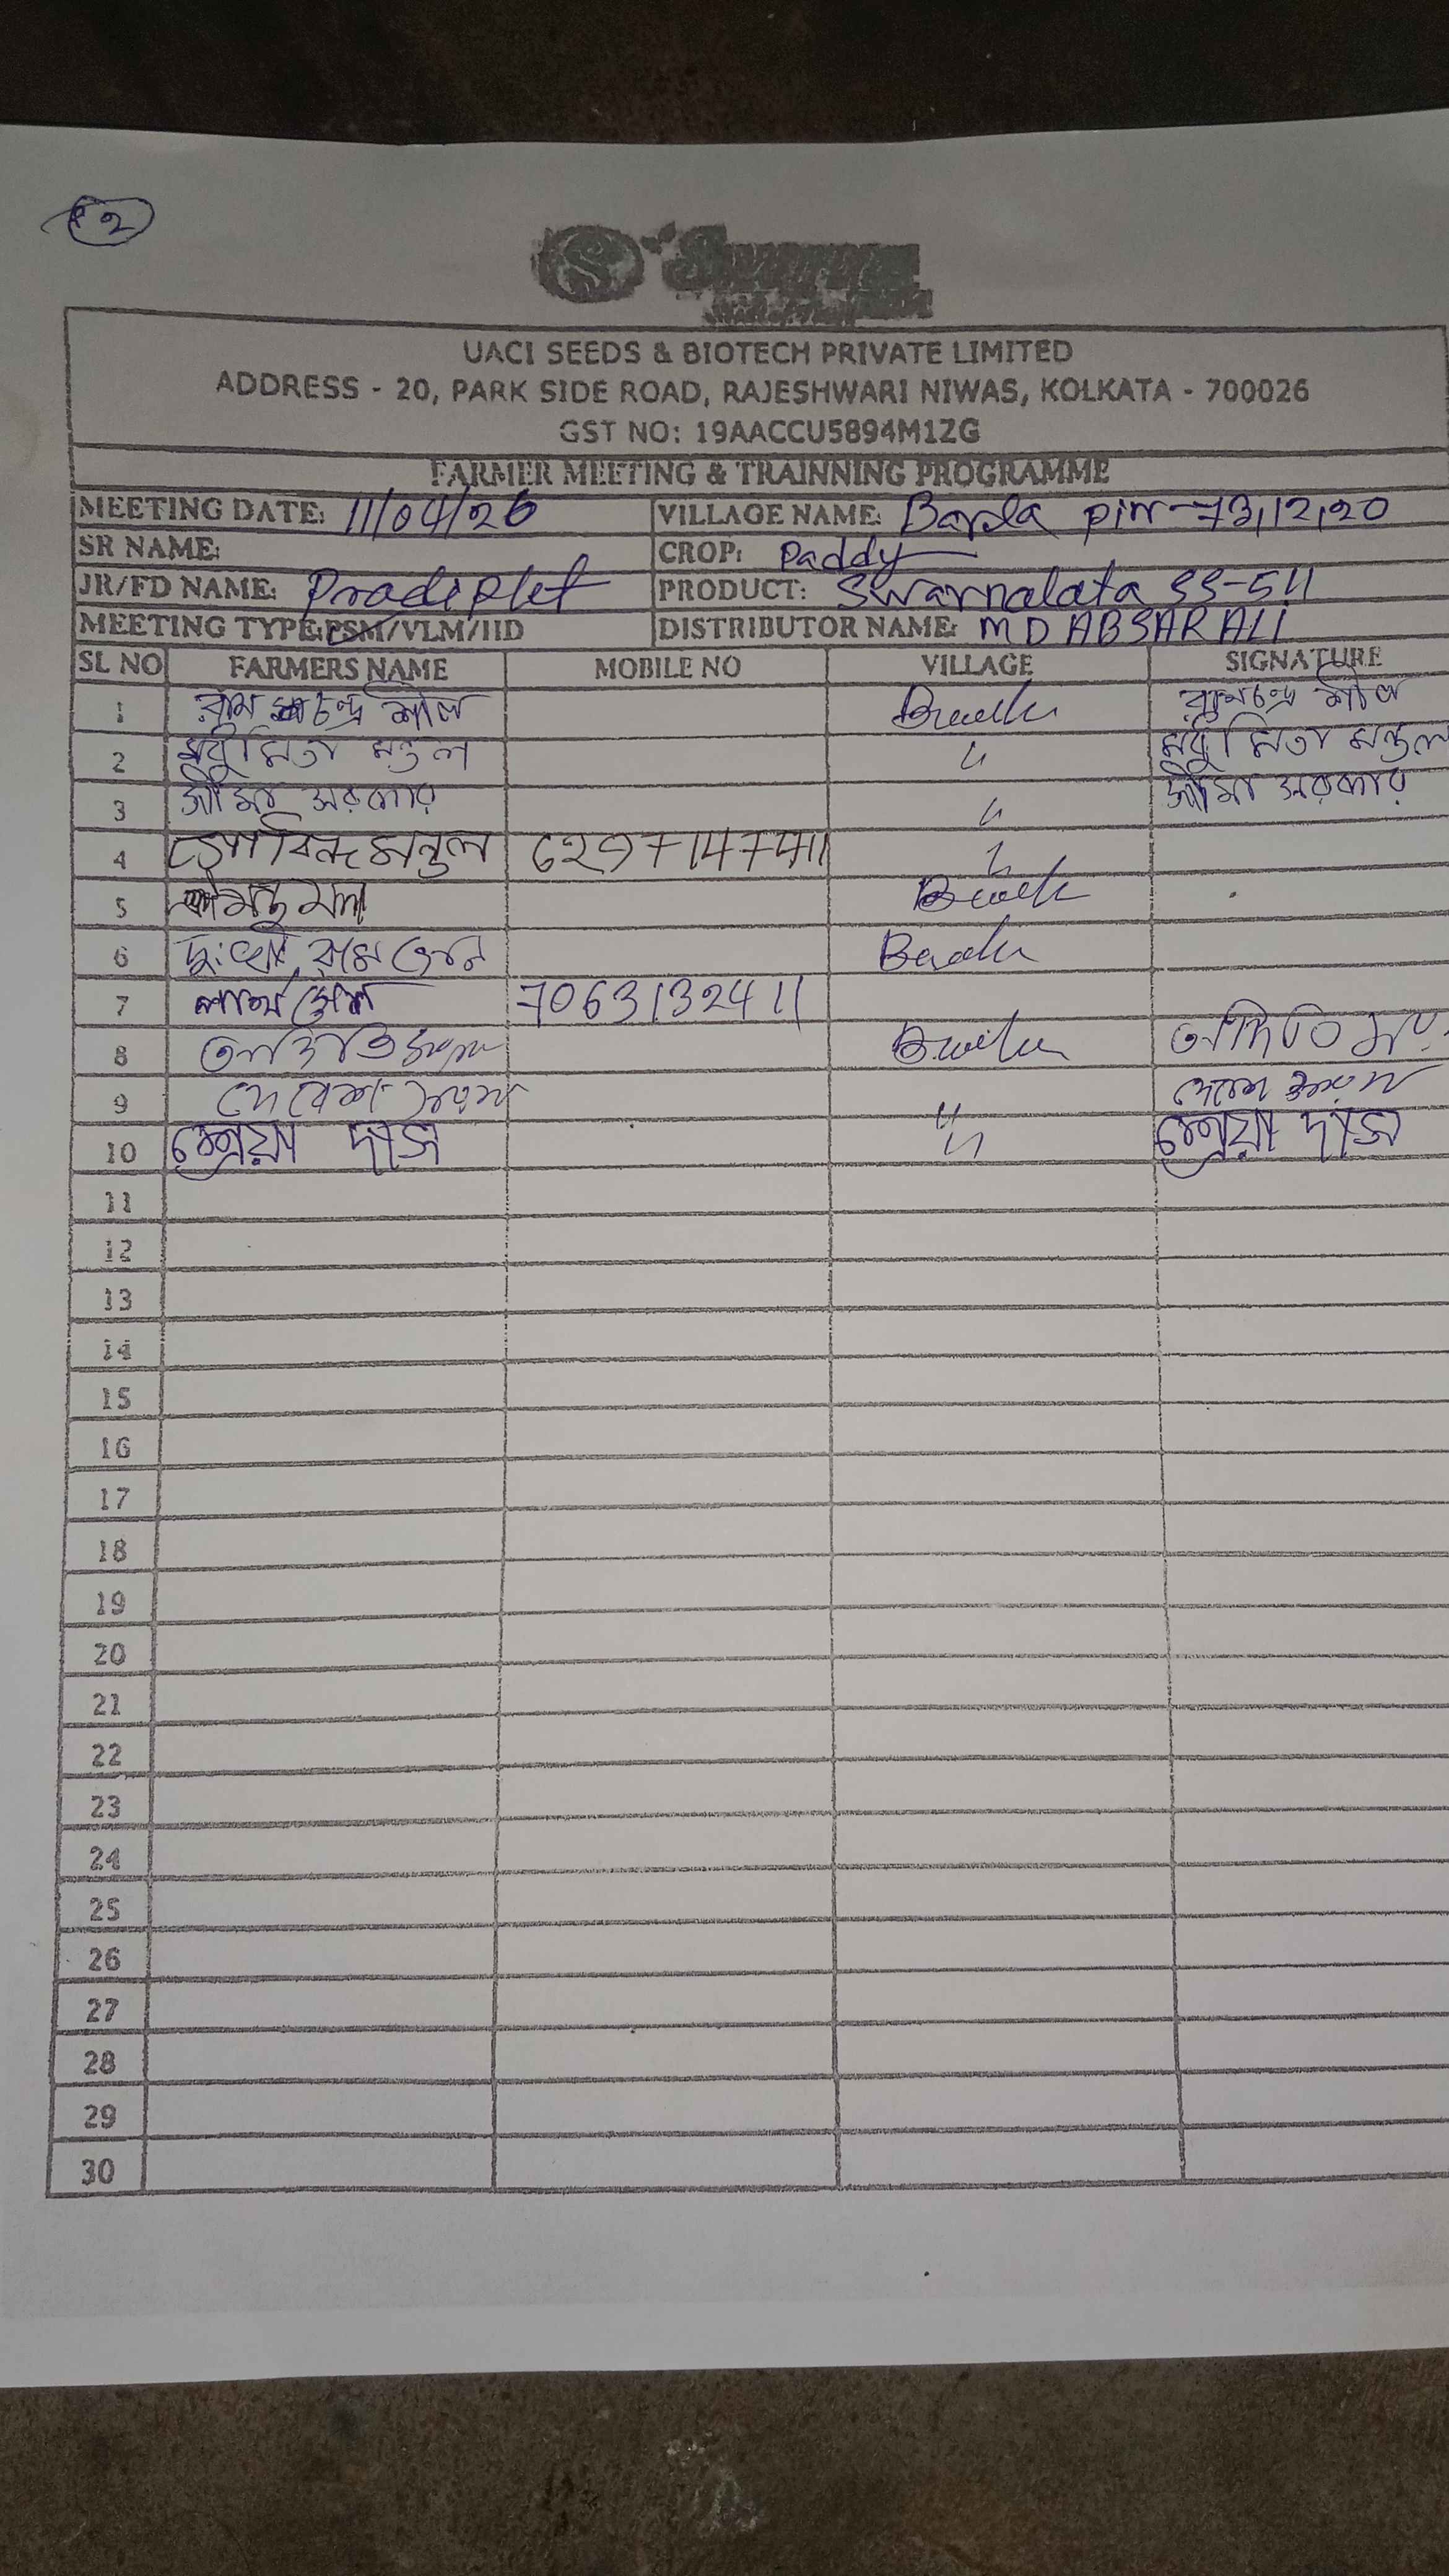 2
Swarna
UACI SEEDS & BIOTECH PRIVATE LIMITED
ADDRESS - 20, PARK SIDE ROAD, RAJESHWARI NIWAS, KOLKATA - 700026
GST NO: 19AACCU5894M1ZG
FARMER MEETING & TRAINNING PROGRAMME
MEETING DATE: 11/04/26 VILLAGE NAME: Barda pin-73,12,20
SR NAME: CROP: Paddy
JR/FD NAME: Pradip Let PRODUCT: Swarnalata SS-511
MEETING TYPE: PSM/VLM/IID DISTRIBUTOR NAME: MD ABSAR ALI
SL NO FARMERS NAME MOBILE NO VILLAGE SIGNATURE
1 রাম চন্দ্র শীল রামচন্দ্র শীল
2 মধুমিতা মন্ডল " মধুমিতা মন্ডল
3 সীমা সরকার " সীমা সরকার
4 গোবিন্দ মন্ডল 6297147411 "
5
6
7 7063132411
8
9 "
10 শ্রেয়া দাস " শ্রেয়া দাস
11
12
13
14
15
16
17
18
19
20
21
22
23
24
25
26
27
28
29
30